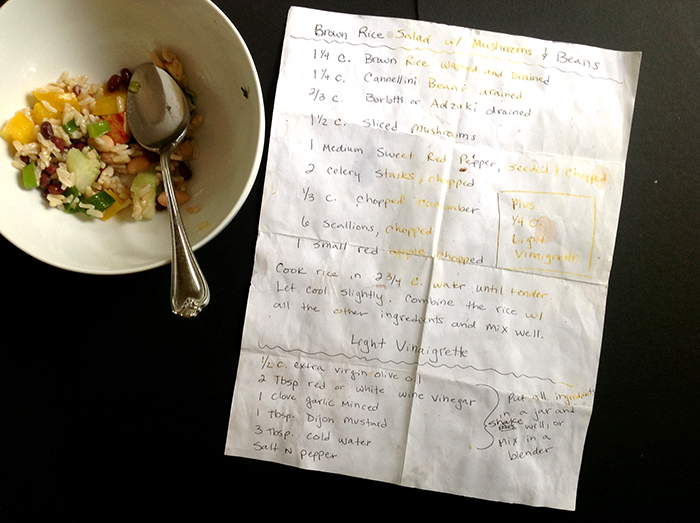 Brown Rice Salad w/ Mushrooms & Beans
1 1/4 c. Brown Rice Washed and Drained
1 1/4 c. Cannellini Beans drained
2/3 c. Borlotti or Adzuki drained
1 1/2 c. Sliced mushrooms
1 Medium Sweet Red Pepper, seeded & chopped
2 celery stalks, chopped
1/3 c. chopped cucumber
6 Scallions, chopped
1 small red apple chopped
Plus
1/4 c.
Light
Vinaigrette
Cook rice in 2 3/4 c. water until tender.
Let cool slightly. Combine the rice w/
all the other ingredients and mix well.
Light Vinaigrette
1/2 c. extra virgin olive oil
2 Tbsp red or white wine vinegar
1 clove garlic Minced
1 Tbsp. Dijon mustard
3 Tbsp. cold water
Salt N pepper
Put all ingredients
in a jar and
shake well, or
Mix in a
blender